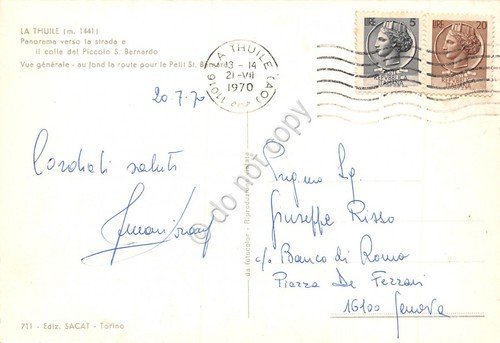 LA THUILE (m. 1441)
Panorama verso la strada e
il colle del Piccolo S. Bernardo
Vue générale - au fond la route pour le Petit St. Bernard
11016 LA THUILE (AO)
13 - 14
21 - VII
1970
L. 5
L. 20
20.7.70
Cordiali saluti
Sg.
Giuseppe Risso
c/o Banco di Roma
Piazza De Ferrari
16100 Genova
do not copy
da fotocolor - Riproduzione vietata
711 - Ediz. SACAT - Torino